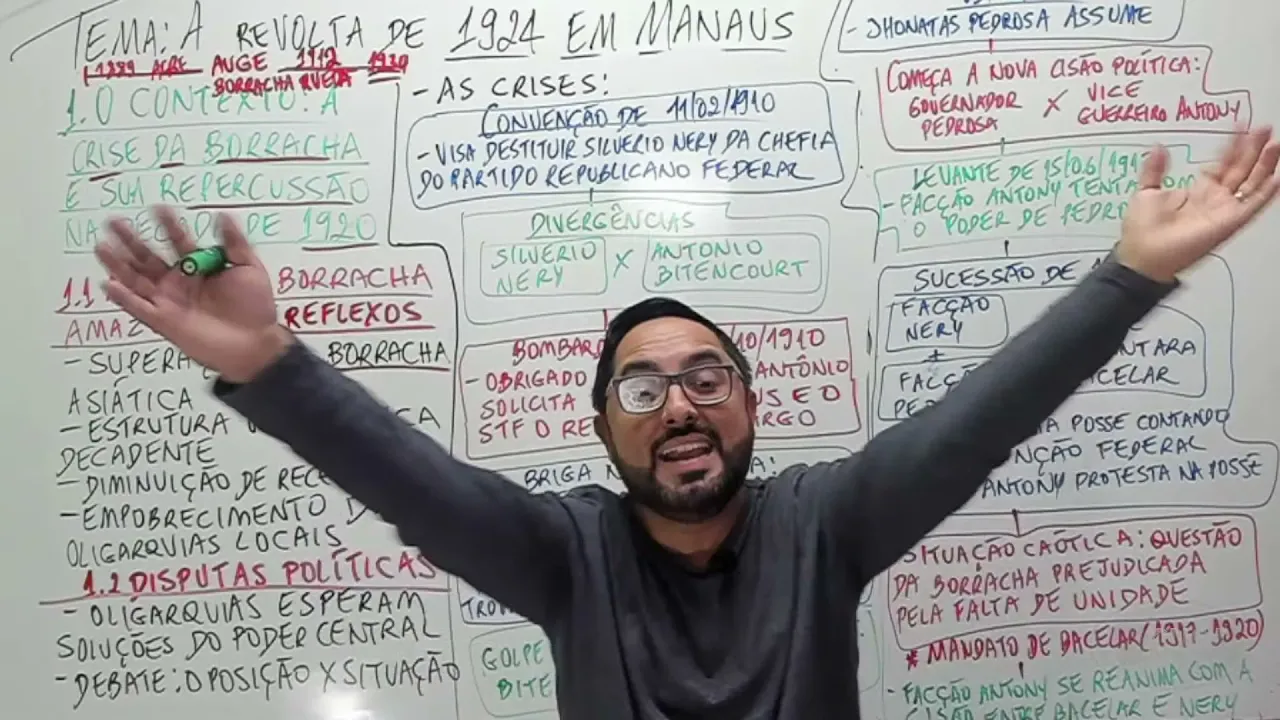 TEMA: A REVOLTA DE 1924 EM MANAUS
1889 ACRE AUGE 1912 1920
BORRACHA QUEDA
1.0 CONTEXTO: A
CRISE DA BORRACHA
E SUA REPERCUSSÃO
DE 1920
1.1 BORRACHA
REFLEXOS
BORRACHA
ASIÁTICA
- ESTRUTURA
DECADENTE
- DIMINUIÇÃO DE
- EMPOBRECIMENTO
OLIGARQUIAS LOCAIS
1.2 DISPUTAS POLÍTICAS
- OLIGARQUIAS ESPERAM
SOLUÇÕES DO PODER CENTRAL
- DEBATE: OPOSIÇÃO X SITUAÇÃO
- AS CRISES:
CONVENÇÃO DE 11/02/1910
- VISA DESTITUIR SILVÉRIO NERY DA CHEFIA
DO PARTIDO REPUBLICANO FEDERAL
DIVERGÊNCIAS
SILVÉRIO NERY X ANTONIO BITENCOURT
10/1910
- OBRIGADO ANTÔNIO
SOLICITA E O
STF O
BRIGA
GOLPE
- JHONATAS PEDROSA ASSUME
COMEÇA A NOVA CISÃO POLÍTICA:
GOVERNADOR PEDROSA X VICE GUERREIRO ANTONY
LEVANTE DE 15/06/191
- FACÇÃO ANTONY TENTA
O PODER DE
SUCESSÃO DE
FACÇÃO
NERY
+
POSSE CONTANDO
FEDERAL
ANTONY PROTESTA NA POSSE
SITUAÇÃO CAÓTICA: QUESTÃO
DA BORRACHA PREJUDICADA
PELA FALTA DE UNIDADE
* MANDATO DE BACELAR (1917-1920)
- FACÇÃO ANTONY SE REANIMA COM A
CISÃO ENTRE BACELAR E NERY